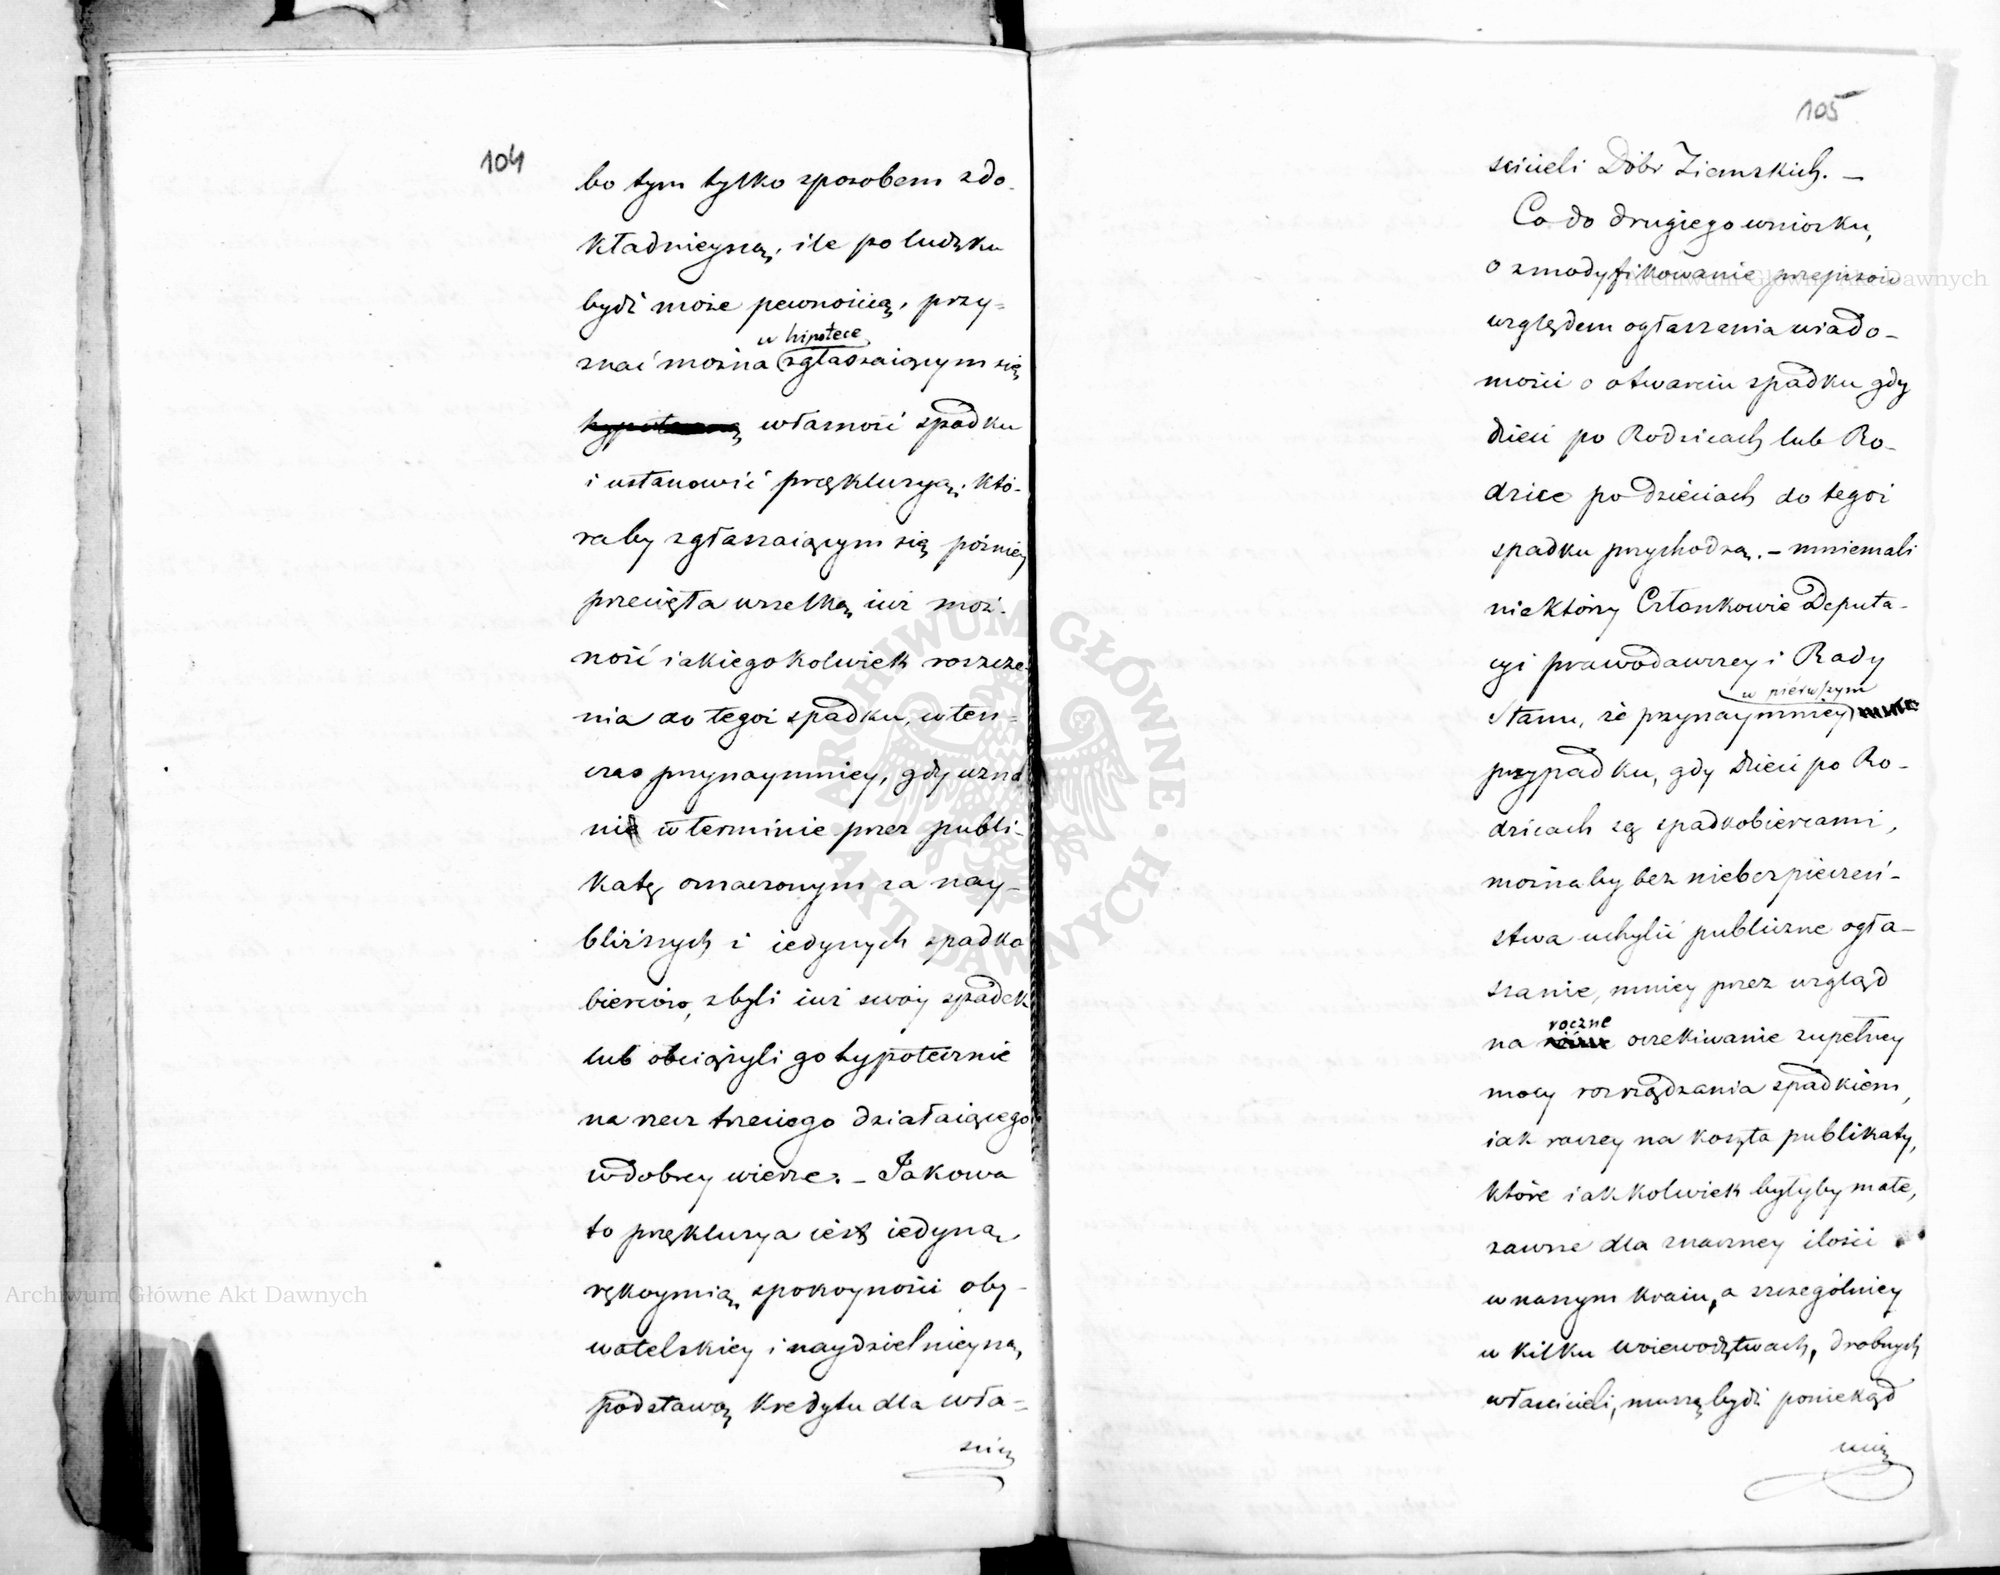 104
bo tym tylko sposobem z do-
kładnieyszą, ile po ludzku
bydź może pewnością, przy-
w hipotece
znać można zgłaszaiącym się
własność spadku
i ustanowić prękluzyą, któ-
raby zgłaszaiącym się pózniey
przecięła wszelką iuż moż-
ność iakiegokolwiek roszcze-
nia do tegoż spadku, w ten-
czas przynaymniey, gdy uzna
ni w terminie przez publi-
katę oznaczonym za nay-
bliższych i iedynych spadko
bierców, zbyli iuż swóy spadek
lub obciążyli go hypotecznie
na rzecz trzeciego działaiącego
w dobrey wierze. – Jakowa
to prękluzya iest iedyną
rękoymią spokoyności oby-
watelskiey i naydzielnieyszą,
podstawą kredytu dla wła-
ścici
105
ścicieli Dóbr Ziemskich. –
Co do drugiego wniosku,
o zmodyfikowanie przepisów
względem ogłaszania wiado-
mości o otwarciu spadku gdy
dzieci po Rodzicach lub Ro-
dzice po dzieciach do tegoż
spadku przychodzą. – mniemali
niektórzy Członkowie Deputa-
cyi prawodawczey i Rady
w piérwszym
Stanu, że przynaymniey
przypadku, gdy dzieci po Ro-
dzicach są spadkobiercami,
możnaby bez niebezpieczeń-
stwa uchylić publiczne ogła-
szanie, mniey przez wzgląd
roczne
na oczekiwanie zupełney
mocy rozrządzania spadkiem,
iak raczey na koszta publikaty,
które iakkolwiek byłyby małe,
zawsze dla znaczney ilości
w naszym kraiu, a szczególniey
w kilku woiewództwach, drobnych
właścicieli, muszą bydź poniekąd
Archiwum Główne Akt Dawnych
Archiwum Główne Akt Dawnych
ARCHIWUM GŁÓWNE · AKT DAWNYCH ·